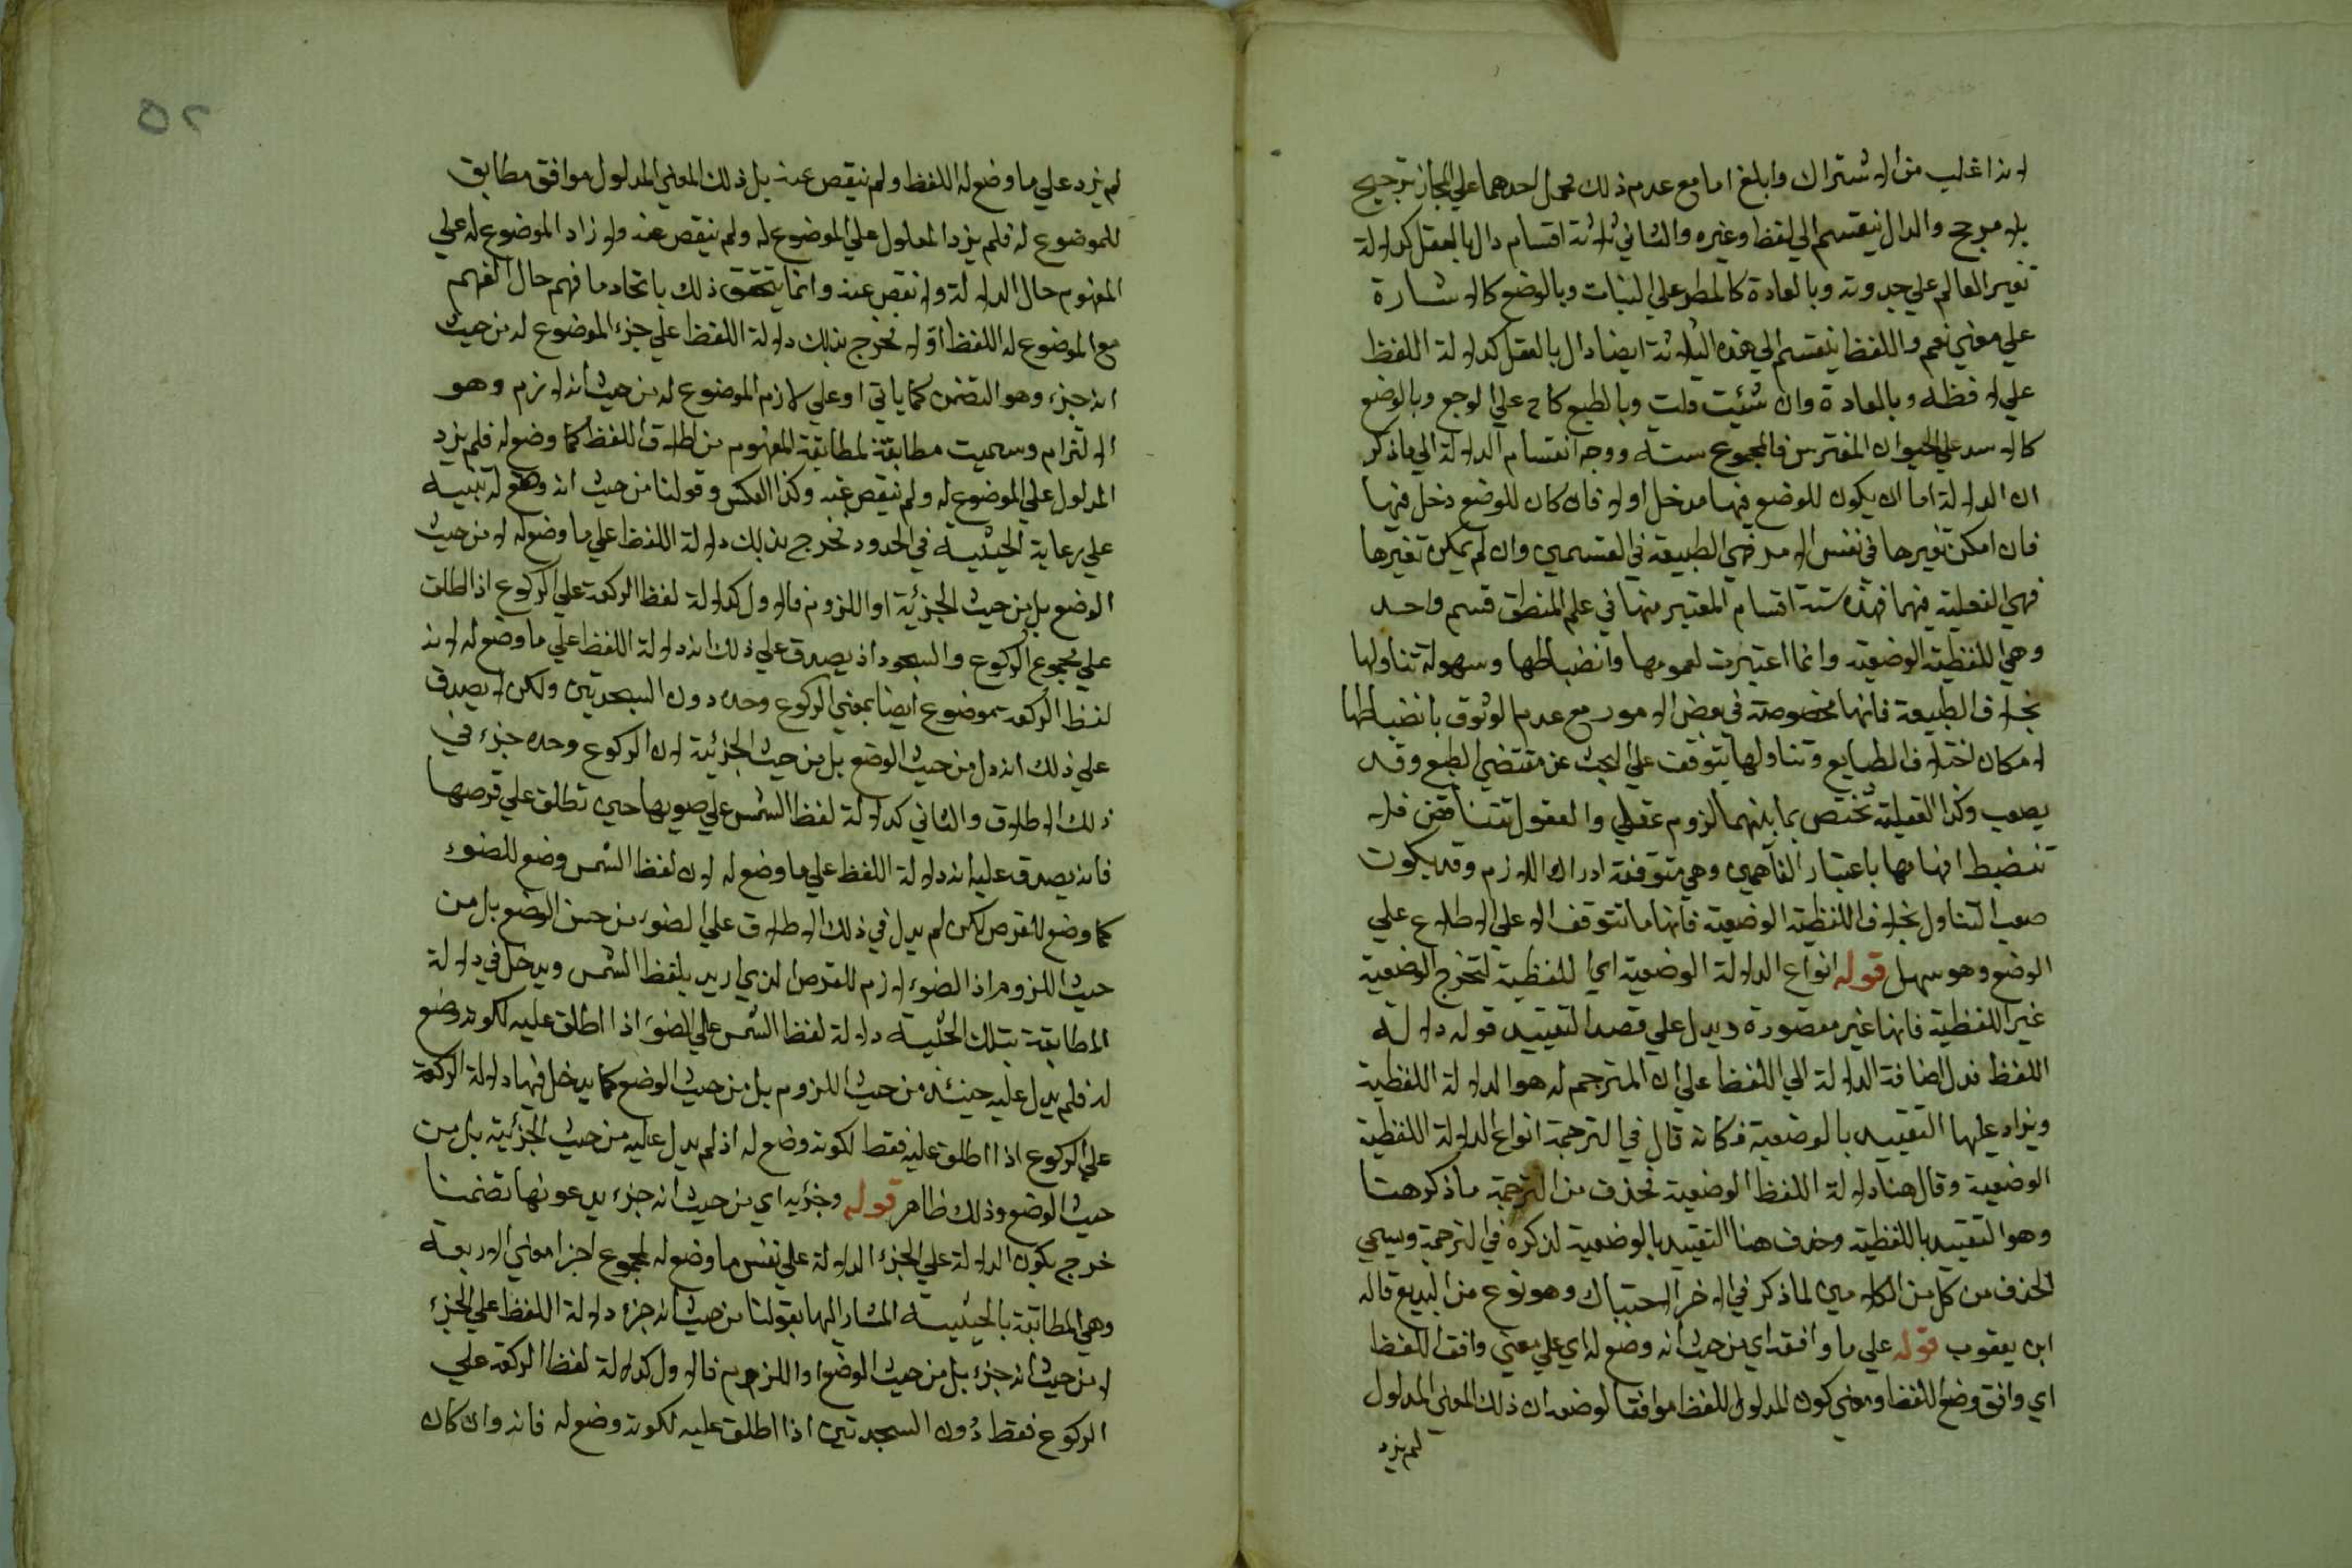 لانه اغلب من الاشتراك وابلغ اما مع عدم ذلك فحمل احدهما علي المجاز ترجيح
بلا مرجح والدال ينقسم الي لفظ وغيره والثاني ثلاثة اقسام دال بالعقل كدلالة
تغير العالم علي حدوثه وبالعادة كالمطر علي النبات وبالوضع كالاشارة
علي معني نعم واللفظ ينقسم الي هذه الثلاثة ايضا دال بالعقل كدلالة اللفظ
علي لافظه وبالعادة وان شئت قلت وبالطبع كاح علي الوجع وبالوضع
كالاسد علي الحيوان المفترس فالمجموع ستة ووجه انقسام الدلالة الي ما ذكر
ان الدلالة اما ان يكون للوضع فيها مدخل اولا فان كان للوضع دخل فيها
فان امكن تغيرها في نفس الامر فهي الطبيعة في القسمين وان لم يمكن تغيرها
فهي العقلية فيهما فهذه ستة اقسام المعتبر منها في علم المنطق قسم واحد
وهي اللفظية الوضعية وانما اعتبرت لعمومها وانضباطها وسهولة تناولها
بخلاف الطبيعة فانها مخصوصة في بعض الامور مع عدم الوثوق بانضباطها
لامكان اختلاف الطبايع وتناولها يتوقف علي البحث عن مقتضي الطبع وقد
يصعب وكذا العقلية تختص بما بينهما لزوم عقلي والعقول تتناقض فلا
تنضبط افهامها باعتبار الفاهمين وهي متوقفة ادراك اللازم وقد يكون
صعب التناول بخلاف اللفظية الوضعية فانها ما تتوقف الا علي الاطلاع علي
الوضع وهو سهل قوله انواع الدلالة الوضعية اي اللفظية لتخرج الوضعية
غير اللفظية فانها غير مقصورة ويدل علي قصد التقييد قوله دلالة
اللفظ فدل اضافة الدلالة الي اللفظ علي ان المترجم له هو الدلالة اللفظية
ويزاد عليها التقييد بالوضعية فكانه قال في الترجمة انواع الدلالة اللفظية
الوضعية وقال هنا دلالة اللفظ الوضعية فحذف من الترجمة ما ذكر هنا
وهو التقييد باللفظية وحذف هنا التقييد بالوضعية لذكره في الترجمة ويسمي
الحذف من كل من الكلامين لما ذكر في الاخر الاحتباك وهو نوع من البديع قاله
ابن يعقوب قوله علي ما وافقه اي من حيث انه وضع له اي علي معني وافق اللفظ
اي وافق وضع اللفظ ومعني كون المدلول للفظ موافقا لوضعه ان ذلك المعني المدلول
لم يزد
٥٢
لم يزد علي ما وضع له اللفظ ولم ينقص عنه بل ذلك المعني المدلول موافق مطابق
للموضوع له فلم يزد المدلول علي الموضوع له ولم ينقص عنه ولا زاد الموضوع له علي
المفهوم حال الدلالة ولا نقص عنه وانما يتحقق ذلك باتحاد ما فهم حال الفهم
مع الموضوع له اللفظ اولا فخرج بذلك دلالة اللفظ علي جزء الموضوع له من حيث
انه جزء وهو التضمن كما ياتي او علي لازم الموضوع له من حيث انه لازم وهو
الالتزام وسميت مطابقة لمطابقة المفهوم من اطلاق اللفظ كما وضع له فلم يزد
المدلول علي الموضوع له ولم ينقص عنه وكذا العكس وقولنا من حيث انه وضع له تنبيه
علي رعاية الحيثية في الحدود فخرج بذلك دلالة اللفظ علي ما وضع له لا من حيث
الوضع بل من حيث الجزئية او اللزوم فالاول كدلالة لفظ الركعة علي الركوع اذا اطلق
علي مجموع الركوع والسجود اذ يصدق علي ذلك انه دلالة اللفظ علي ما وضع له لانه
لفظ الركعة موضوع ايضا بمعني الركوع وحده دون السجدتين ولكن لا يصدق
علي ذلك انه دل من حيث الوضع بل من حيث الجزئية لان الركوع وحده جزء في
ذلك الاطلاق والثاني كدلالة لفظ الشمس علي ضويها حين تطلق علي قرصها
فانه يصدق عليه انه دلالة اللفظ علي ما وضع له لان لفظ الشمس وضع للضوء
كما وضع للقرص لكن لم يدل في ذلك الاطلاق علي الضوء من حيث الوضع بل من
حيث اللزوم اذ الضوء لازم للقرص الذي اريد بلفظ الشمس ويدخل في دلالة
المطابقة بتلك الحيثية دلالة لفظ الشمس علي الضوء اذا اطلق عليه لكونه وضع
له فلم يدل عليه حينئذ من حيث اللزوم بل من حيث الوضع كما يدخل فيها دلالة الركعة
علي الركوع اذا اطلق عليه فقط لكونه وضع له اذ لم يدل عليه من حيث الجزئية بل من
حيث الوضع وذلك ظاهر قوله وجزئه اي من حيث انه جزء يدعونها تضمنا
خرج بكون الدلالة علي الجزء الدلالة علي نفس ما وضع له لمجموع اجزا معني الاربعة
وهي المطابقة بالحيثية المشار اليها بقولنا من حيث انه جزء دلالة اللفظ علي الجزء
لا من حيث انه جزء بل من حيث الوضع او اللزوم فالاول كدلالة لفظ الركعة علي
الركوع فقط دون السجدتين اذا اطلق عليه لكونه وضع له فانه وان كان